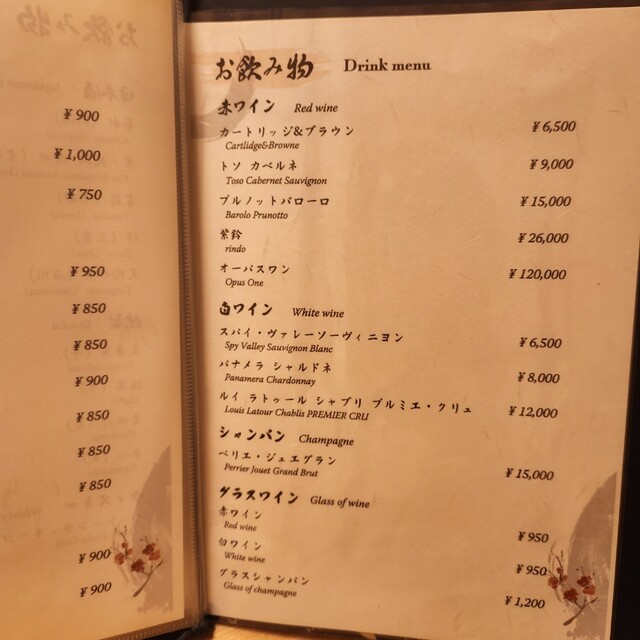 ¥ 900
¥ 1,000
¥ 750
¥ 950
¥ 850
¥ 850
¥ 900
¥ 850
¥ 850
¥ 850
¥ 900
¥ 900
お飲み物 Drink menu
赤ワイン Red wine
カートリッジ&ブラウン ¥ 6,500
Cartlidge&Browne
トソ カベルネ ¥ 9,000
Toso Cabernet Sauvignon
プルノットバローロ ¥ 15,000
Barolo Prunotto
紫鈴 ¥ 26,000
rindo
オーパスワン ¥ 120,000
Opus One
白ワイン White wine
スパイ・ヴァレーソーヴィニヨン ¥ 6,500
Spy Valley Sauvignon Blanc
パナメラ シャルドネ ¥ 8,000
Panamera Chardonnay
ルイ ラトゥール シャブリ プルミエ・クリュ ¥ 12,000
Louis Latour Chablis PREMIER CRU
シャンパン Champagne
ペリエ・ジュエグラン ¥ 15,000
Perrier Jouet Grand Brut
グラスワイン Glass of wine
赤ワイン ¥ 950
Red wine
白ワイン ¥ 950
White wine
グラスシャンパン ¥ 1,200
Glass of champagne